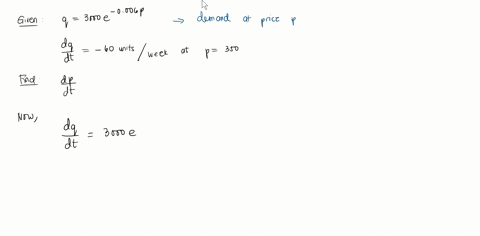 Given: q = 3000 e^{-0.006p} → demand at price p
dq/dt = -60 units/week at p = 350
Find dp/dt
Now,
dq/dt = 3000 e